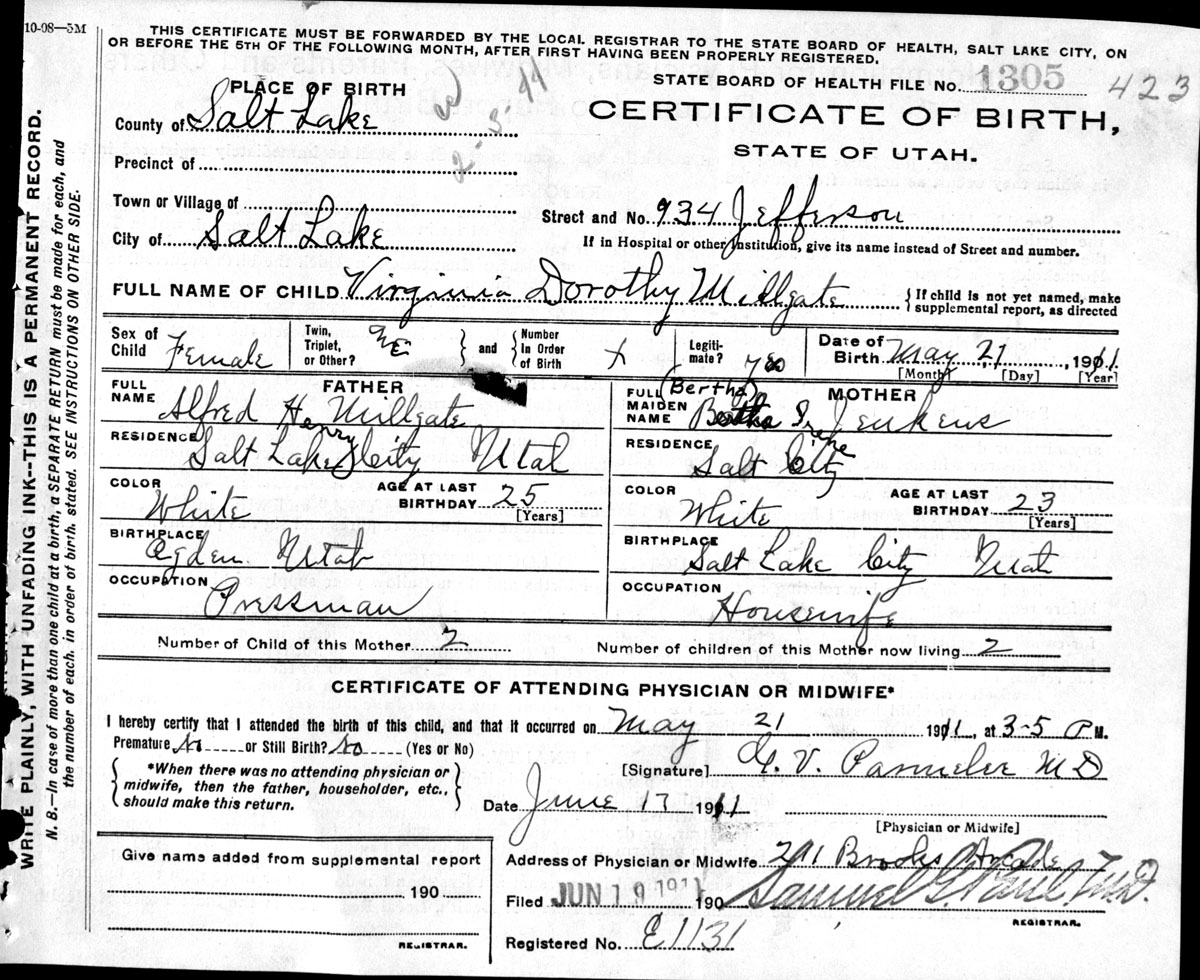 10-08—5M
THIS CERTIFICATE MUST BE FORWARDED BY THE LOCAL REGISTRAR TO THE STATE BOARD OF HEALTH, SALT LAKE CITY, ON
OR BEFORE THE 5TH OF THE FOLLOWING MONTH, AFTER FIRST HAVING BEEN PROPERLY REGISTERED.
STATE BOARD OF HEALTH FILE No. 1305 423
PLACE OF BIRTH
CERTIFICATE OF BIRTH,
STATE OF UTAH.
County of Salt Lake
Precinct of
Town or Village of
Street and No. 934 Jefferson
City of Salt Lake
If in Hospital or other Institution, give its name instead of Street and number.
FULL NAME OF CHILD Virginia Dorothy Millgate { If child is not yet named, make
supplemental report, as directed
Sex of Child Female Twin, Triplet, or Other? } and { Number In Order of Birth Legiti- mate? yes Date of Birth May 21, 1911
[Month] [Day] [Year]
FATHER
FULL NAME Alfred Henry Millgate
RESIDENCE Salt Lake City Utah
COLOR White AGE AT LAST BIRTHDAY 25 [Years]
BIRTHPLACE Ogden Utah
OCCUPATION Pressman
MOTHER
FULL MAIDEN NAME (Bertha) Bertha Irene Jenkens
RESIDENCE Salt City
COLOR White AGE AT LAST BIRTHDAY 23 [Years]
BIRTHPLACE Salt Lake City Utah
OCCUPATION Housewife
Number of Child of this Mother 2 Number of children of this Mother now living 2
CERTIFICATE OF ATTENDING PHYSICIAN OR MIDWIFE*
I hereby certify that I attended the birth of this child, and that it occurred on May 21 1911, at 3-5 P M.
Premature No or Still Birth? No (Yes or No)
{ *When there was no attending physician or
midwife, then the father, householder, etc.,
should make this return. }
[Signature] V. Parmelee MD
Date June 17 1911
[Physician or Midwife]
Give name added from supplemental report
190
REGISTRAR.
Address of Physician or Midwife 201 Brooks Arcade
Filed JUN 19 1911 190 Samuel G. Paul M.D.
REGISTRAR.
Registered No. E1131
WRITE PLAINLY, WITH UNFADING INK--THIS IS A PERMANENT RECORD.
N. B.—In case of more than one child at a birth, a SEPARATE RETURN must be made for each, and
the number of each, in order of birth, stated. SEE INSTRUCTIONS ON OTHER SIDE.